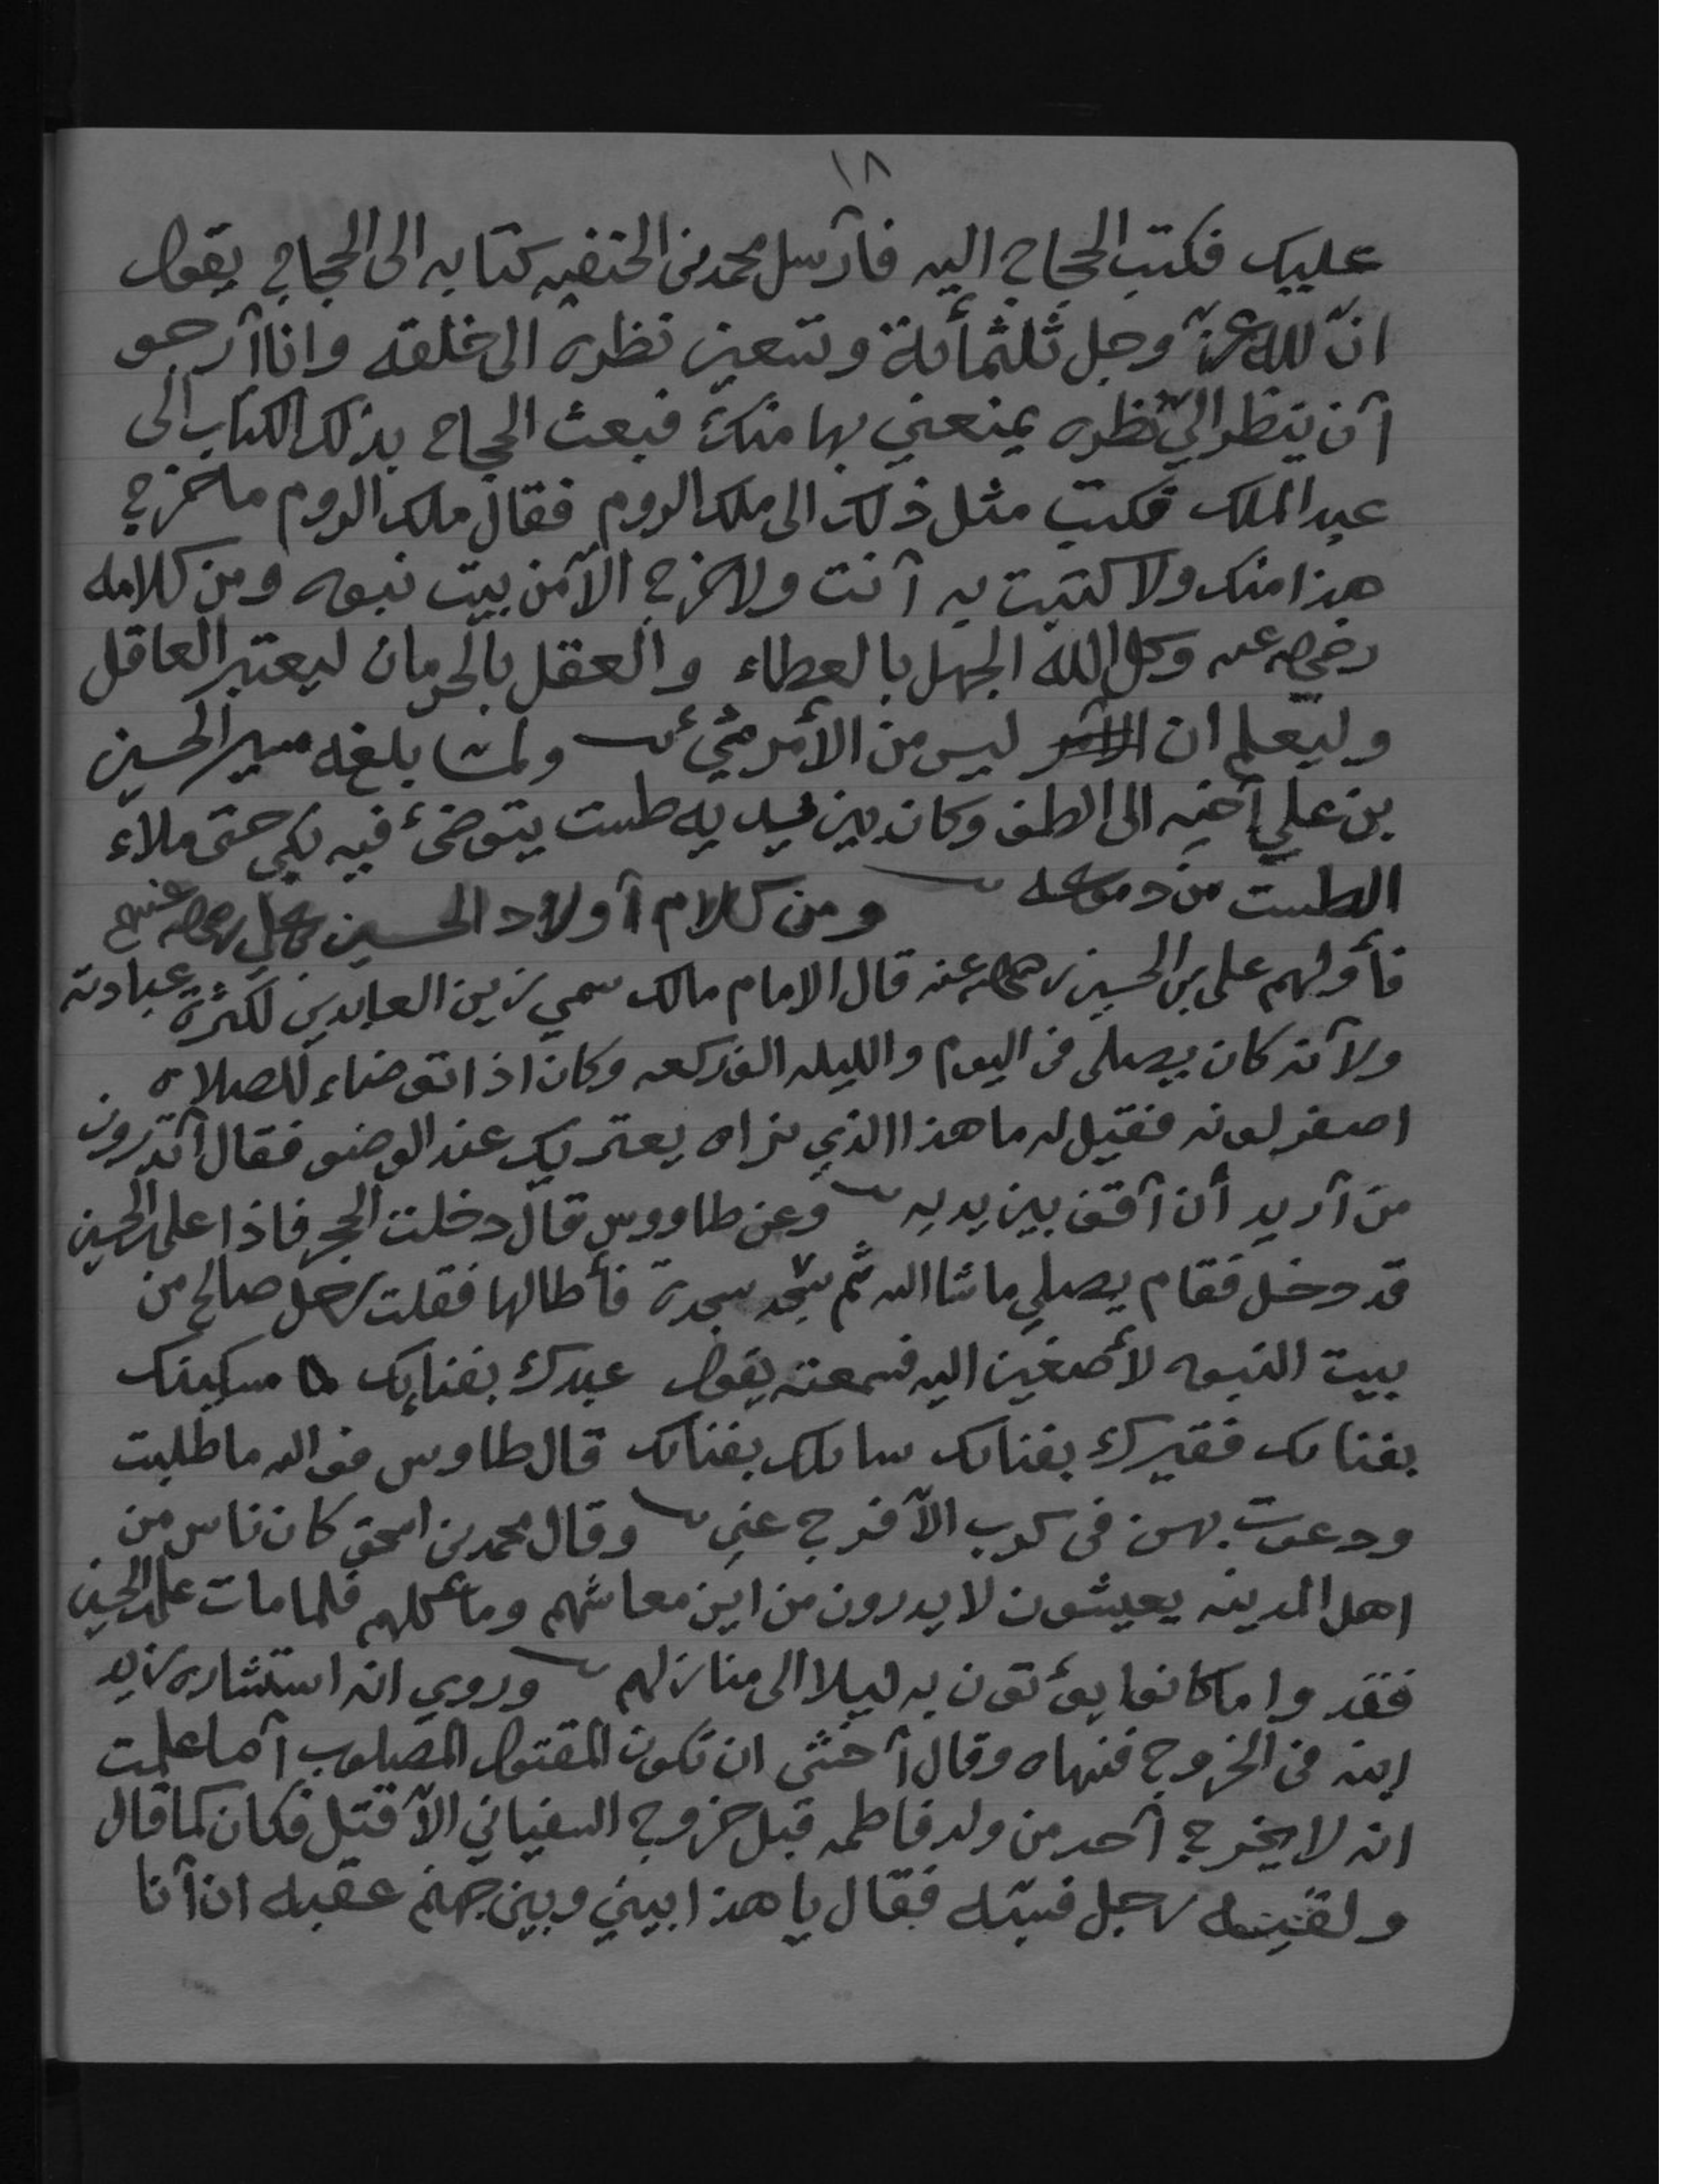 ١٨
عليك فكتب الحجاج اليه فآرسل محمد بن الحنفيه كتابه الى الحجاج يقول
انّ لله عزّ وجل ثلثمأئة وتسعين نظره الى خلقه وانا آرجو
آن ينظر اليّ نظره يمنعني بها منك فبعث الحجاج بذلك الكتاب الى
عبد الملك فكتب مثل ذلك الى ملك الروم فقال ملك الروم ما خرج
هذا منك ولا كتبت به آنت ولا خرج الآ من بيت نبوه ومن كلامه
رضي الله عنه وكل الله الجهل بالعطاء والعقل بالحرمان ليعتبر العاقل
وليعلم ان ليس من الأمر شيء ولما بلغه مسير الحسين
بن علي آخيه الى الطف وكان بين يديه طست يتوضئ فيه بكى حتى ملاء
الطست من دموعه ومن كلام آولاد الحسين بن علي رضي الله عنهم
فأولهم على بن الحسين رضي الله عنه قال الامام مالك سمي زين العابدين لكثرة عبادته
ولآنه كان يصلى فى اليوم والليله الف ركعه وكان اذا توضاء للصلاه
اصفر لونه فقيل له ما هذا الذي نراه يعتريك عند الوضو فقال آتدرون
من آريد أن آقف بين يديه وعن طاووس قال دخلت الحجر فاذا على بن الحسين
قد دخل فقام يصلي ما شا الله ثم سجد سجدة فأطالها فقلت رجل صالح من
بيت النبوه لأصغين اليه فسمعته يقول عبدك بفنايك مسكينك
بفنايك فقيرك بفنايك سايلك بفنايك قال طاوس فوالله ما طلبت
ودعوت بهن فى كرب الآ فرج عني وقال محمد بن اسحق كان ناس من
اهل المدينه يعيشون لا يدرون من اين معاشهم وماكلهم فلما مات على بن الحسين
فقدوا ما كانوا يؤتون به ليلا الى منازلهم وروي انه استشاره زيد
ابنه فى الخروج فنهاه وقال آخشى ان تكون المقتول المصلوب آما علمت
انه لا يخرج آحد من ولد فاطمه قبل خروج السفياني الآ قتل فكان كما قال
ولقيه رجل فسبّه فقال يا هذا بيني وبين جهنم عقبه ان آنا